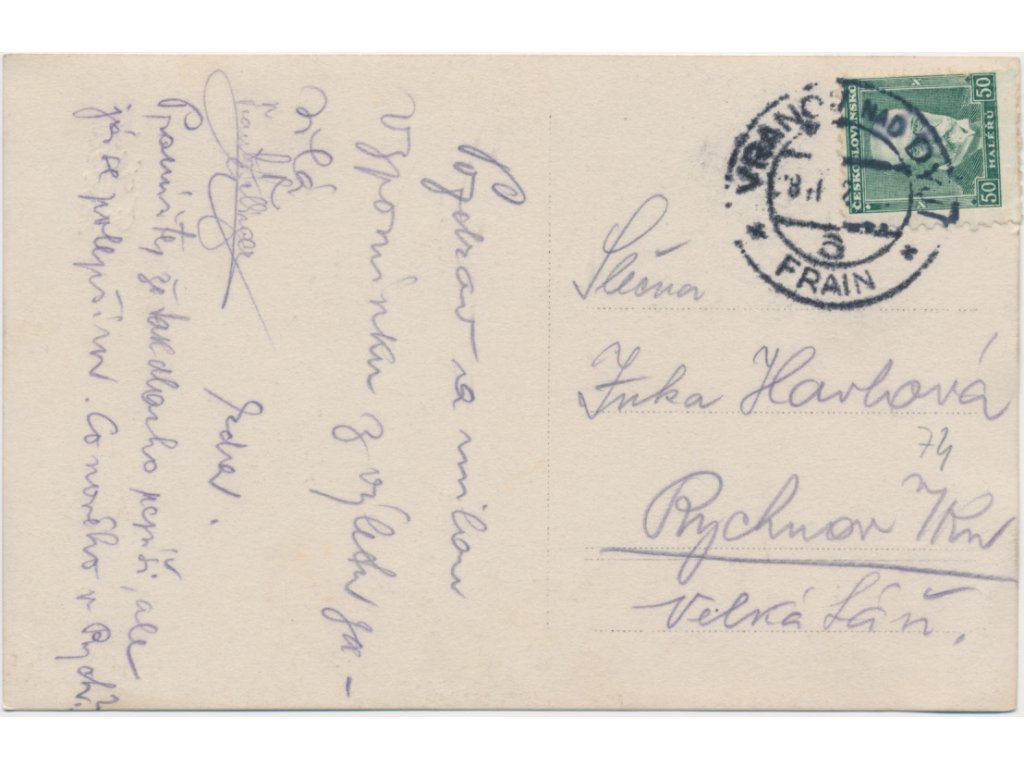 Pozdrav a milou
vzpomínku z výletu za-
sílá
Jenda.
Promiňte, že tak dlouho nepíši, ale
já se polepším. Co nového v Rychn.?
VRANOV NAD DYJÍ
FRAIN
ČESKOSLOVENSKO
50 HALÉŘŮ 50
Slečna
Inka Havlová
74
Rychnov n/Kn
Velká Láň.